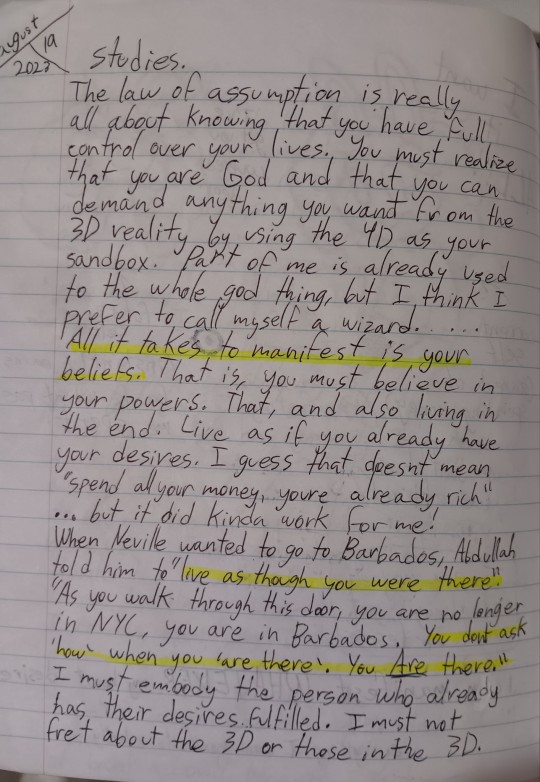 August
19
2023
Studies.
The law of assumption is really
all about knowing that you have full
control over your lives. You must realize
that you are God and that you can
demand anything you want from the
3D reality by using the 4D as your
sandbox. Part of me is already used
to the whole god thing, but I think I
prefer to call myself a wizard......
All it takes to manifest is your
beliefs. That is, you must believe in
your powers. That, and also living in
the end. Live as if you already have
your desires. I guess that doesnt mean
"spend all your money, youre already rich"
... but it did kinda work for me!
When Neville wanted to go to Barbados, Abdullah
told him to "live as though you were there".
"As you walk through this door, you are no longer
in NYC, you are in Barbados. You dont ask
'how' when you 'are there'. You Are there."
I must embody the person who already
has their desires fulfilled. I must not
fret about the 3D or those in the 3D.